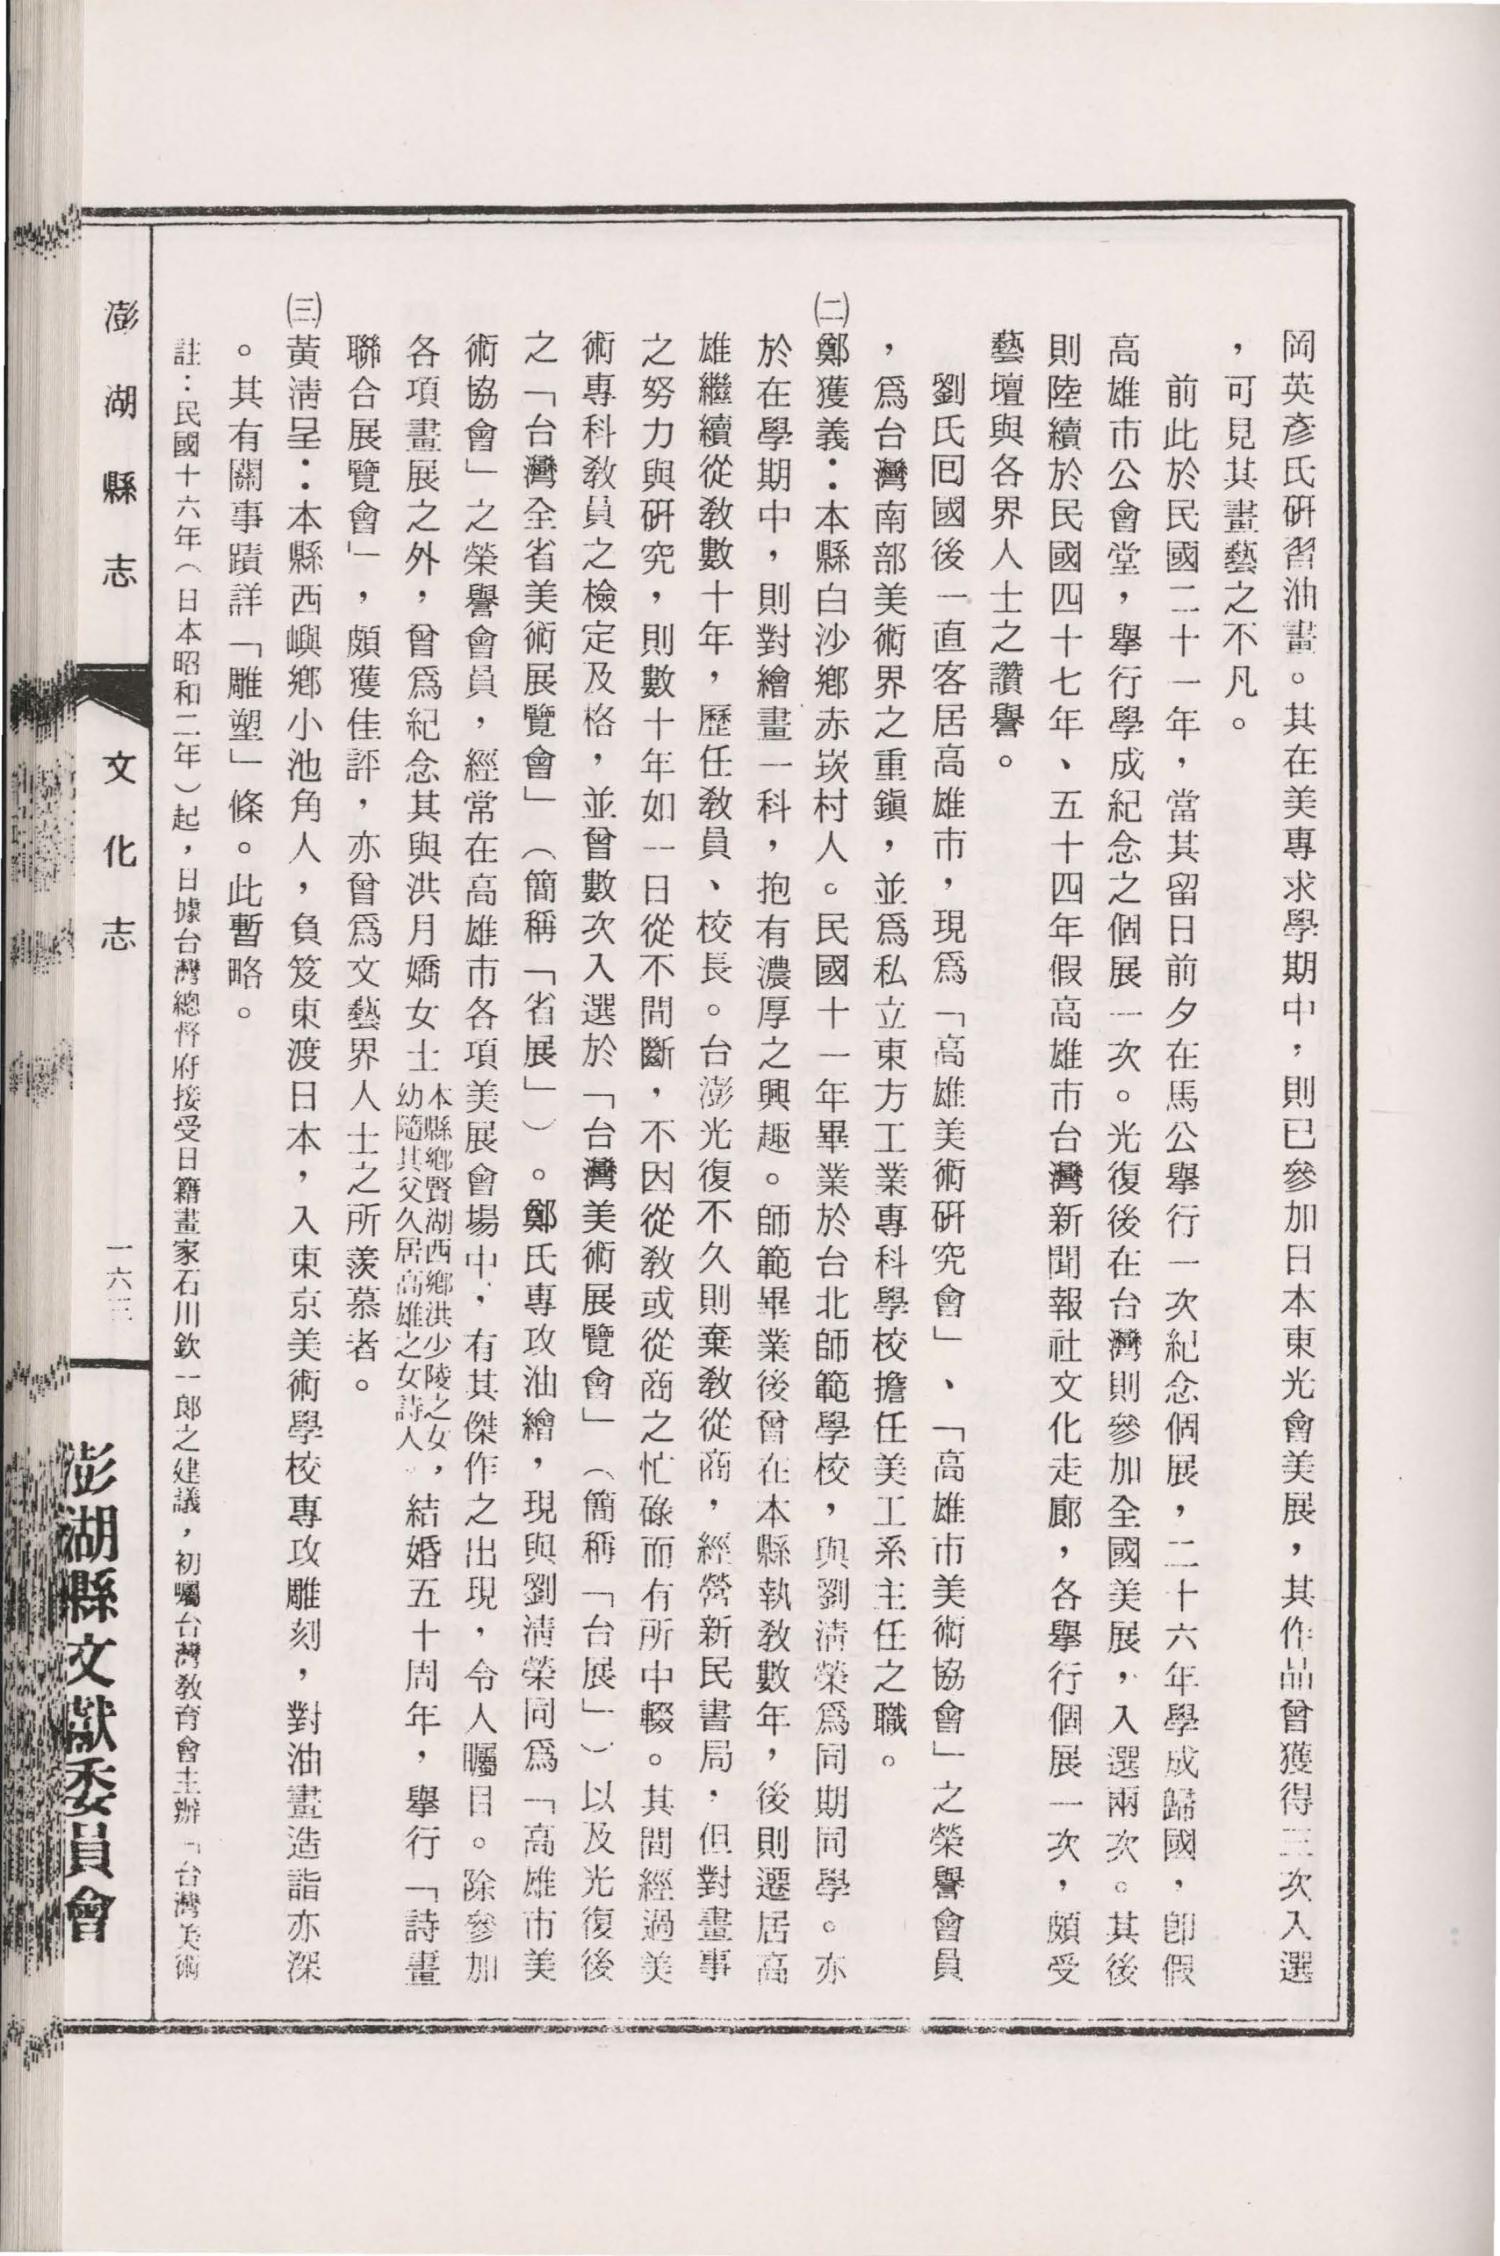 岡英彥氏研習油畫。其在美專求學期中，則已參加日本東光會美展，其作品曾獲得三次入選
，可見其畫藝之不凡。
前此於民國二十一年，當其留日前夕在馬公舉行一次紀念個展，二十六年學成歸國，卽假
高雄市公會堂，舉行學成紀念之個展一次。光復後在台灣則參加全國美展，入選兩次。其後
則陸續於民國四十七年、五十四年假高雄市台灣新聞報社文化走廊，各舉行個展一次，頗受
藝壇與各界人士之讚譽。
劉氏回國後一直客居高雄市，現爲「高雄美術研究會」、「高雄市美術協會」之榮譽會員
，爲台灣南部美術界之重鎮，並爲私立東方工業專科學校擔任美工系主任之職。
㈡鄭獲義：本縣白沙鄉赤崁村人。民國十一年畢業於台北師範學校，與劉淸榮爲同期同學。亦
於在學期中，則對繪畫一科，抱有濃厚之興趣。師範畢業後曾在本縣執敎數年，後則遷居高
雄繼續從敎數十年，歷任敎員、校長。台澎光復不久則棄敎從商，經營新民書局，但對畫事
之努力與研究，則數十年如一日從不間斷，不因從敎或從商之忙碌而有所中輟。其間經過美
術專科敎員之檢定及格，並曾數次入選於「台灣美術展覽會」（簡稱「台展」）以及光復後
之「台灣全省美術展覽會」（簡稱「省展」）。鄭氏專攻油繪，現與劉淸榮同爲「高雄市美
術協會」之榮譽會員，經常在高雄市各項美展會場中，有其傑作之出現，令人矚目。除參加
各項畫展之外，曾爲紀念其與洪月嬌女士本縣鄉賢湖西鄉洪少陵之女幼隨其父久居高雄之女詩人，結婚五十周年，舉行「詩畫
聯合展覽會」，頗獲佳評，亦曾爲文藝界人士之所羨慕者。
㈢黃淸呈：本縣西嶼鄉小池角人，負笈東渡日本，入東京美術學校專攻雕刻，對油畫造詣亦深
。其有關事蹟詳「雕塑」條。此暫略。
註：民國十六年（日本昭和二年）起，日據台灣總督府接受日籍畫家石川欽一郎之建議，初囑台灣敎育會主辦「台灣美術
澎湖縣志
文化志
一六三
澎湖縣文獻委員會